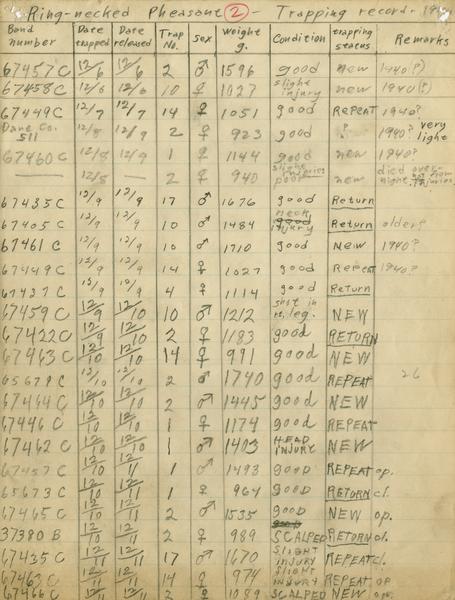 Ring-necked Pheasant 2 - Trapping record - 19
Band number Date trapped Date released Trap No. Sex Weight g. Condition trapping status Remarks
67457 C 12/6 12/6 2 ♂ 1596 good new 1940(?)
67458 C 12/6 12/6 10 ♀ 1027 slight injury new 1940(?)
67449 C 12/7 12/7 14 ♀ 1051 good REPEAT 1940?
Dane Co. 511 12/8 12/9 2 ♀ 923 good ? 1940? very light
67460 C 12/8 12/9 1 ♀ 1144 good new 1940?
— 12/8 — 2 ♀ 940 slight injuries poor new died over-night from injuries
67435 C 12/9 12/9 17 ♂ 1676 good Return
67405 C 12/9 12/9 10 ♂ 1484 neck injury Return older?
67461 C 12/9 12/9 10 ♂ 1710 good New 1940?
67449 C 12/9 12/9 14 ♀ 1027 good Repeat 1940?
67437 C 12/9 12/9 4 ♀ 1114 good Return
67459 C 12/9 12/10 10 ♂ 1212 shot in leg. NEW
67422 C 12/9 12/10 2 ♀ 1183 good RETURN
67463 C 12/10 12/10 14 ♀ 991 good NEW
65679 C 12/10 12/10 2 ♂ 1740 good REPEAT 26
67464 C 12/10 12/10 2 ♂ 1445 good NEW
67446 C 12/10 12/10 1 ♀ 1174 good REPEAT
67462 C 12/10 12/10 1 ♂ 1493 HEAD INJURY NEW
67457 C 12/10 12/11 1 ♂ 1493 GOOD REPEAT op.
65673 C 12/10 12/11 1 ♀ 964 GOOD RETURN cl.
67465 C 12/10 12/11 2 ♂ 1535 good NEW op.
37380 B 12/10 12/11 2 ♀ 989 SCALPED RETURN cl.
67435 C 12/11 12/11 17 ♂ 1670 SLIGHT INJURY REPEAT cl.
67463 C 12/11 12/11 14 ♀ 974 SLIGHT INJURY REPEAT op
67466 C 12/11 12/11 2 ♀ 1089 SCALPED NEW op.